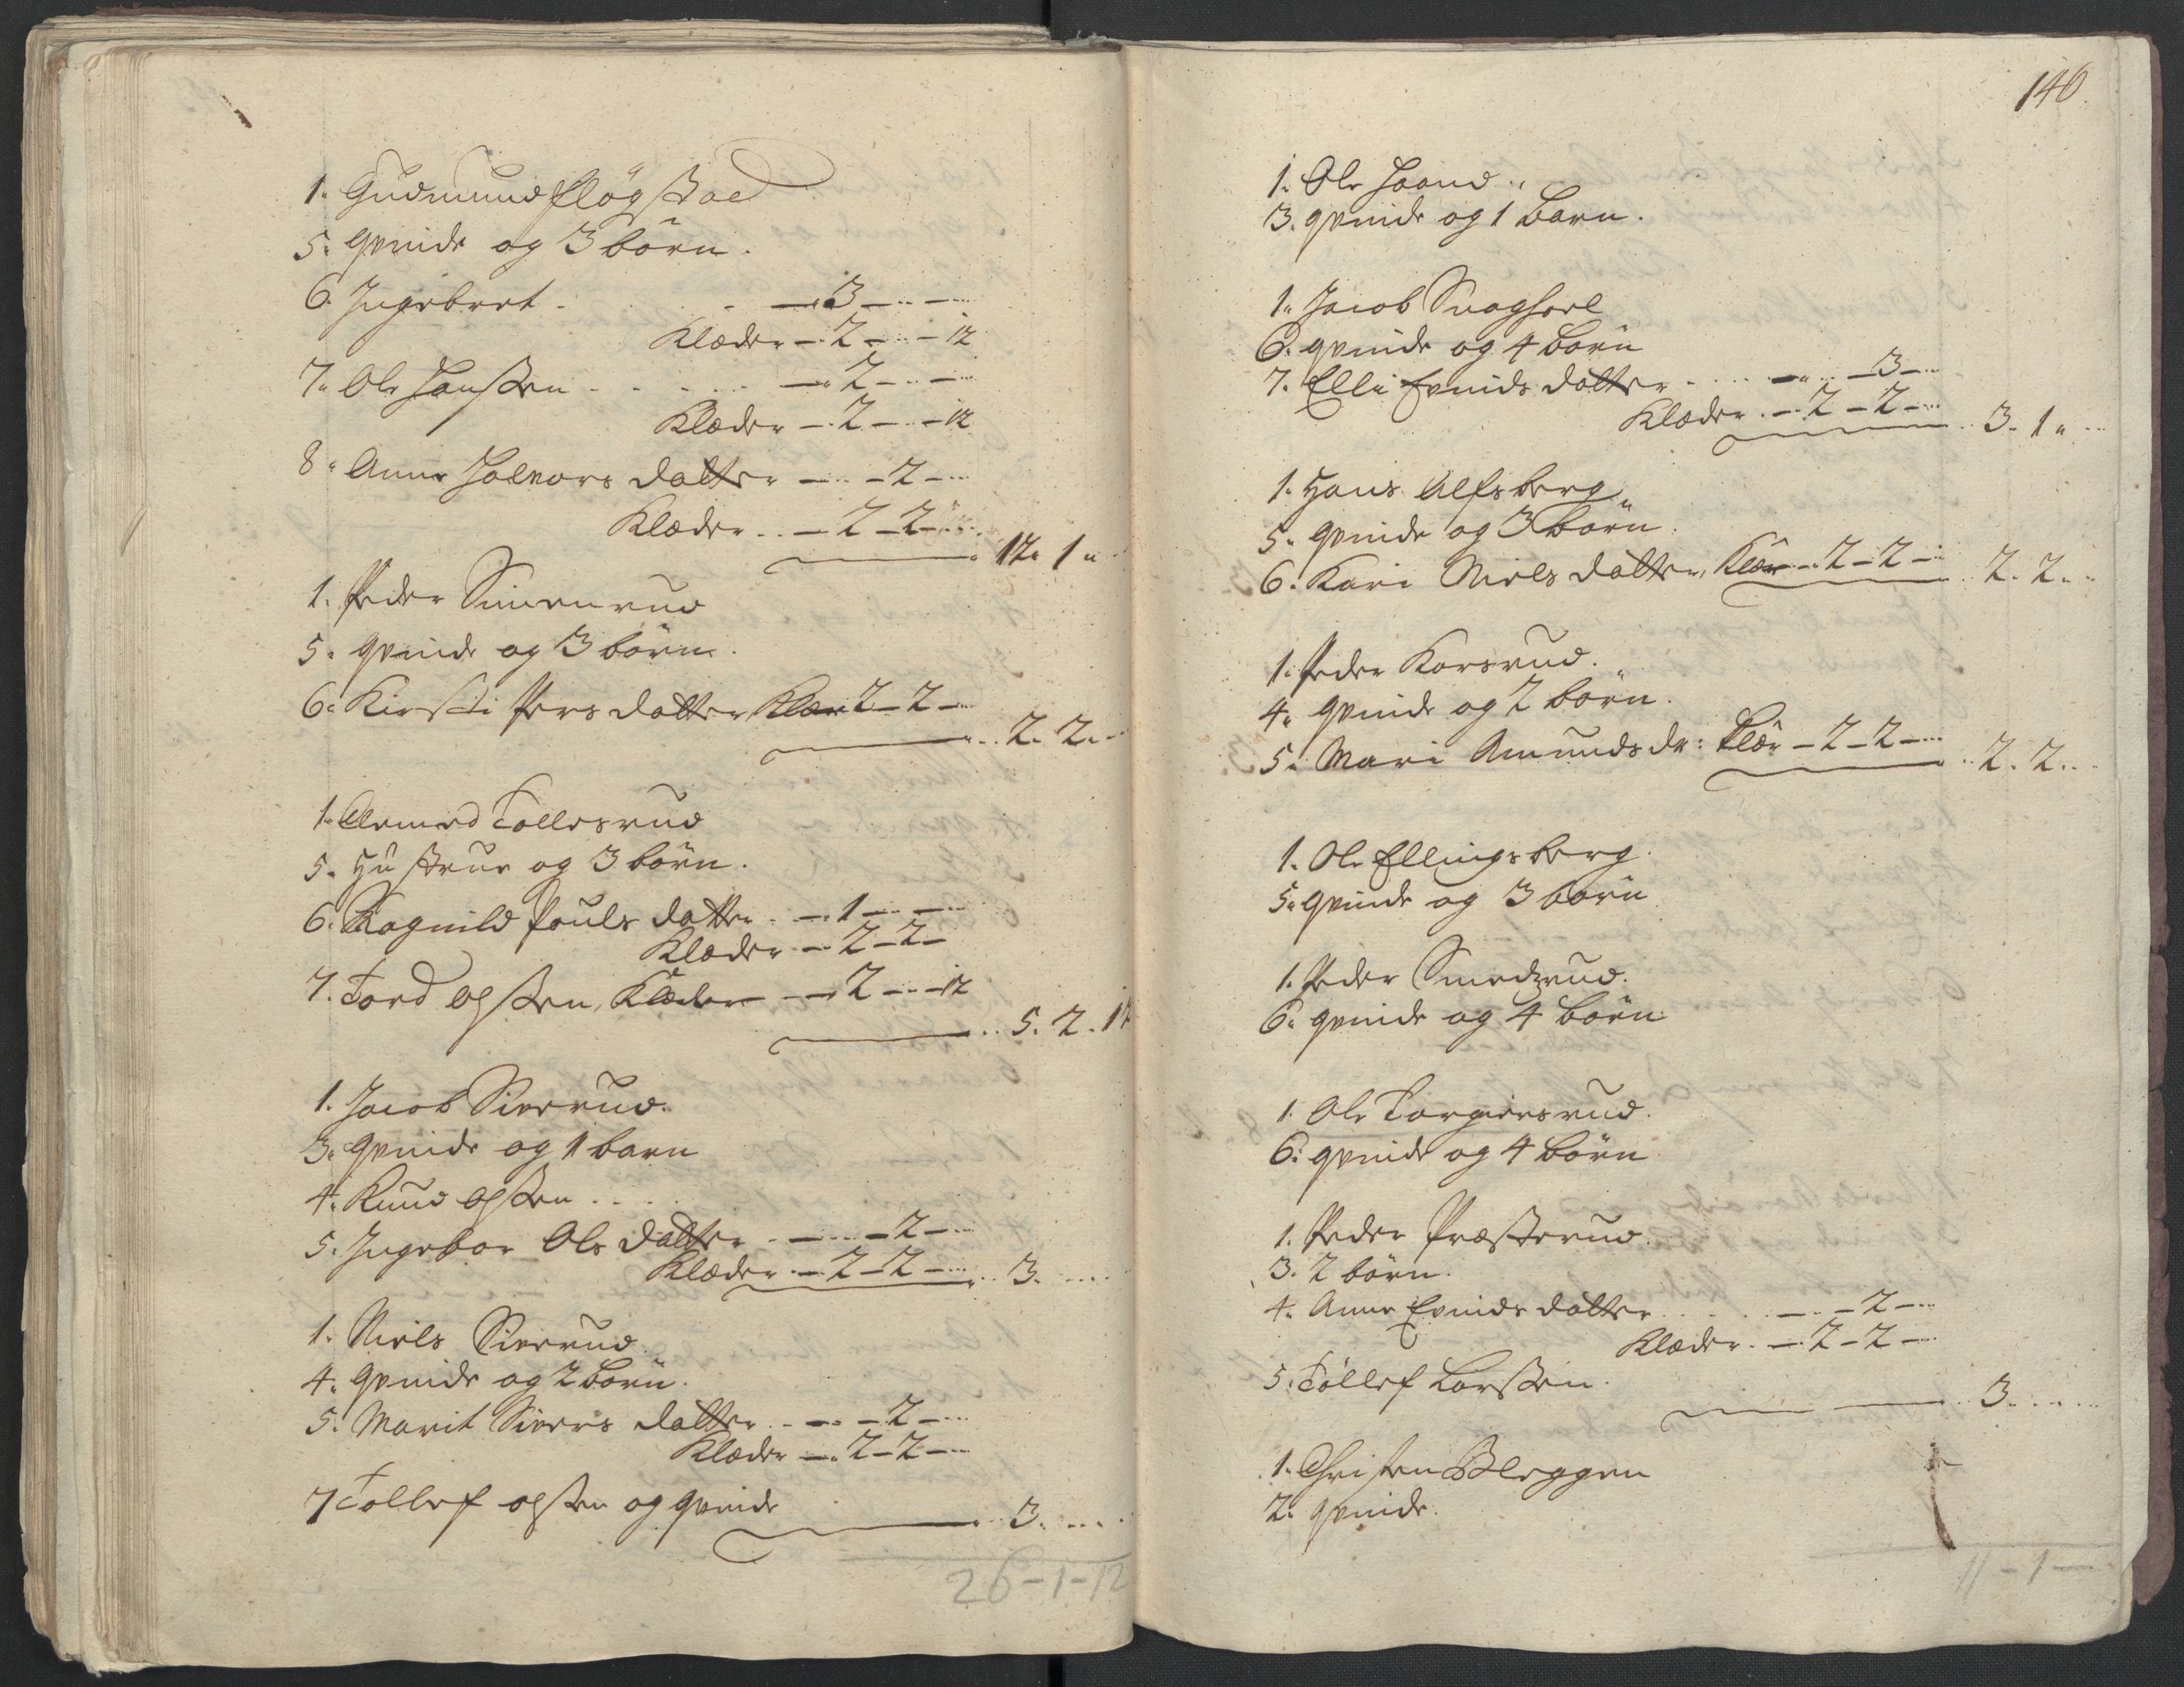 1. Gudmund Fløgstad
5. Qvinde og 3 börn.
6. Ingebret - 3 -
Klæder - 2 - - 12
7. Ole Hanssen - 2 -
Klæder - 2 - - 12
8. Anne Halvors datter - - 2 -
Klæder - 2 - 2 -
12. 1.
1. Peder Simenrud
5. qvinde og 3 börn.
6. Kirsti Pers datter Klær 2 - 2 -
2. 2.
1. Amund Tollesrud
5. Hustrue og 3 börn.
6. Ragnild Pouls datter - 1 -
Klæder - 2 - 2 -
7. Tord Olssen, Klæder - 2 - - 12
5. 2. 12
1. Jacob Siverud.
3. Qvinde og 1 barn
4. Knud Olssen
5. Ingebor Ols datter - - 2 -
Klæder - 2 - 2 - 3.
1. Niels Siverud
4. Qvinde og 2 börn.
5. Marit Sivers datter - - 2 -
Klæder - 2 - 2 -
7 Tollef olssen og qvinde
3.
26-1-12
140.
1. Ole Haand
3. qvinde og 1 barn.
1. Jacob
6. qvinde og 4 börn
7. Elli Evinds datter - - 3 -
Klæder - 2 - 2 - 3. 1.
1. Hans Alfsberg
5. qvinde og 3 börn
6. Kari Niels datter, Klær - 2 - 2 - 2. 2.
1. Peder Korsrud.
4. qvinde og 2 börn.
5. Mari Amunds dr: klær - 2 - 2 - 2. 2.
1. Ole Ellingsberg
5. qvinde og 3 börn
1. Peder Smedzrud.
6. qvinde og 4 börn
1. Ole Torgiersrud.
6. qvinde og 4 börn
1. Peder Præsterud
3. 2 börn.
4. Anne Evinds datter - - 2 -
Klæder. - 2 - 2 -
5. Tollef Larssen.
3.
1. Christen Bleggen
2. qvinde.
11-1-